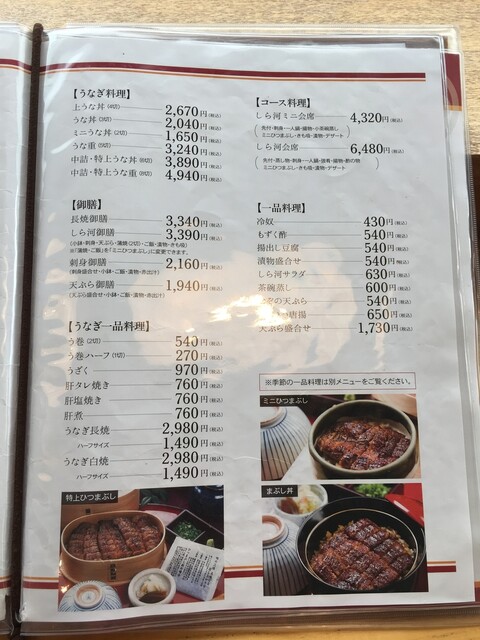 【うなぎ料理】
上うな丼(4切) 2,670円(税込)
うな丼(3切) 2,040円(税込)
ミニうな丼(2切) 1,650円(税込)
うな重(5切) 3,240円(税込)
中詰・特上うな丼(6切) 3,890円(税込)
中詰・特上うな重(8切) 4,940円(税込)
【御膳】
長焼御膳 3,340円(税込)
しら河御膳 3,390円(税込)
(小鉢・刺身・天ぷら・蒲焼(2切)・ご飯・漬物・きも吸)
※「蒲焼・ご飯」を「ミニひつまぶし」に変更できます。
刺身御膳 2,160円(税込)
(刺身盛合せ・小鉢・ご飯・漬物・赤出汁)
天ぷら御膳 1,940円(税込)
(天ぷら盛合せ・小鉢・ご飯・漬物・赤出汁)
【うなぎ一品料理】
う巻(2切) 540円(税込)
う巻ハーフ(1切) 270円(税込)
うざく 970円(税込)
肝タレ焼き 760円(税込)
肝塩焼き 760円(税込)
肝煮 760円(税込)
うなぎ長焼 2,980円(税込)
ハーフサイズ 1,490円(税込)
うなぎ白焼 2,980円(税込)
ハーフサイズ 1,490円(税込)
特上ひつまぶし
【コース料理】
しら河ミニ会席 4,320円(税込)
先付・刺身・一人鍋・揚物・小茶碗蒸し
ミニひつまぶし・きも吸・漬物・デザート
しら河会席 6,480円(税込)
先付・蒸し物・刺身・一人鍋・強肴・揚物・酢の物
ミニひつまぶし・きも吸・漬物・デザート
【一品料理】
冷奴 430円(税込)
もずく酢 540円(税込)
揚出し豆腐 540円(税込)
漬物盛合せ 540円(税込)
しら河サラダ 630円(税込)
茶碗蒸し 600円(税込)
の天ぷら 540円(税込)
唐揚 650円(税込)
天ぷら盛合せ 1,730円(税込)
※季節の一品料理は別メニューをご覧ください。
ミニひつまぶし
まぶし丼